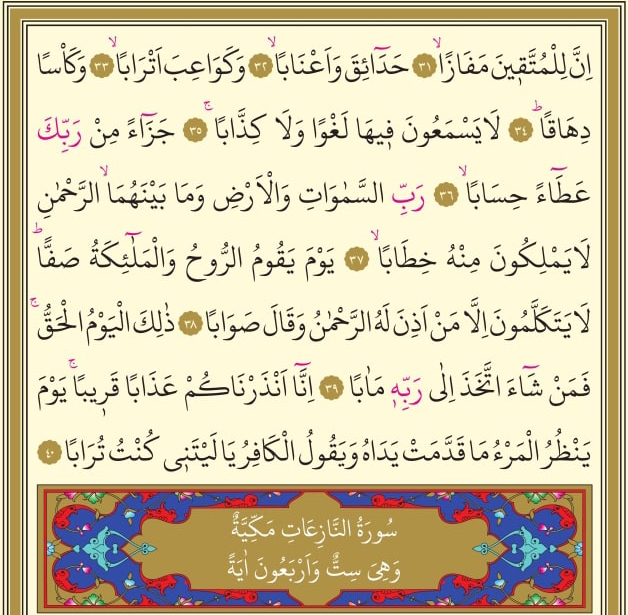 اِنَّ لِلْمُتَّق۪ينَ مَفَازًاۙ ﴿٣١﴾ حَدَٓائِقَ وَاَعْنَابًاۙ ﴿٣٢﴾ وَكَوَاعِبَ اَتْرَابًاۙ ﴿٣٣﴾ وَكَأْسًا
دِهَاقًاۜ ﴿٣٤﴾ لَا يَسْمَعُونَ ف۪يهَا لَغْوًا وَلَا كِذَّابًاۚ ﴿٣٥﴾ جَزَٓاءً مِنْ رَبِّكَ
عَطَٓاءً حِسَابًاۙ ﴿٣٦﴾ رَبِّ السَّمٰوَاتِ وَالْاَرْضِ وَمَا بَيْنَهُمَاۙ الرَّحْمٰنِ
لَا يَمْلِكُونَ مِنْهُ خِطَابًاۙ ﴿٣٧﴾ يَوْمَ يَقُومُ الرُّوحُ وَالْمَلٰٓئِكَةُ صَفًّاۜ
لَا يَتَكَلَّمُونَ اِلَّا مَنْ اَذِنَ لَهُ الرَّحْمٰنُ وَقَالَ صَوَابًا ﴿٣٨﴾ ذٰلِكَ الْيَوْمُ الْحَقُّۚ
فَمَنْ شَٓاءَ اتَّخَذَ اِلٰى رَبِّه۪ مَاٰبًا ﴿٣٩﴾ اِنَّٓا اَنْذَرْنَاكُمْ عَذَابًا قَر۪يبًاۚ يَوْمَ
يَنْظُرُ الْمَرْءُ مَا قَدَّمَتْ يَدَاهُ وَيَقُولُ الْكَافِرُ يَا لَيْتَن۪ي كُنْتُ تُرَابًا ﴿٤٠﴾
سُورَةُ النَّازِعَاتِ مَكِّيَّةٌ
وَهِيَ سِتٌّ وَاَرْبَعُونَ اٰيَةً